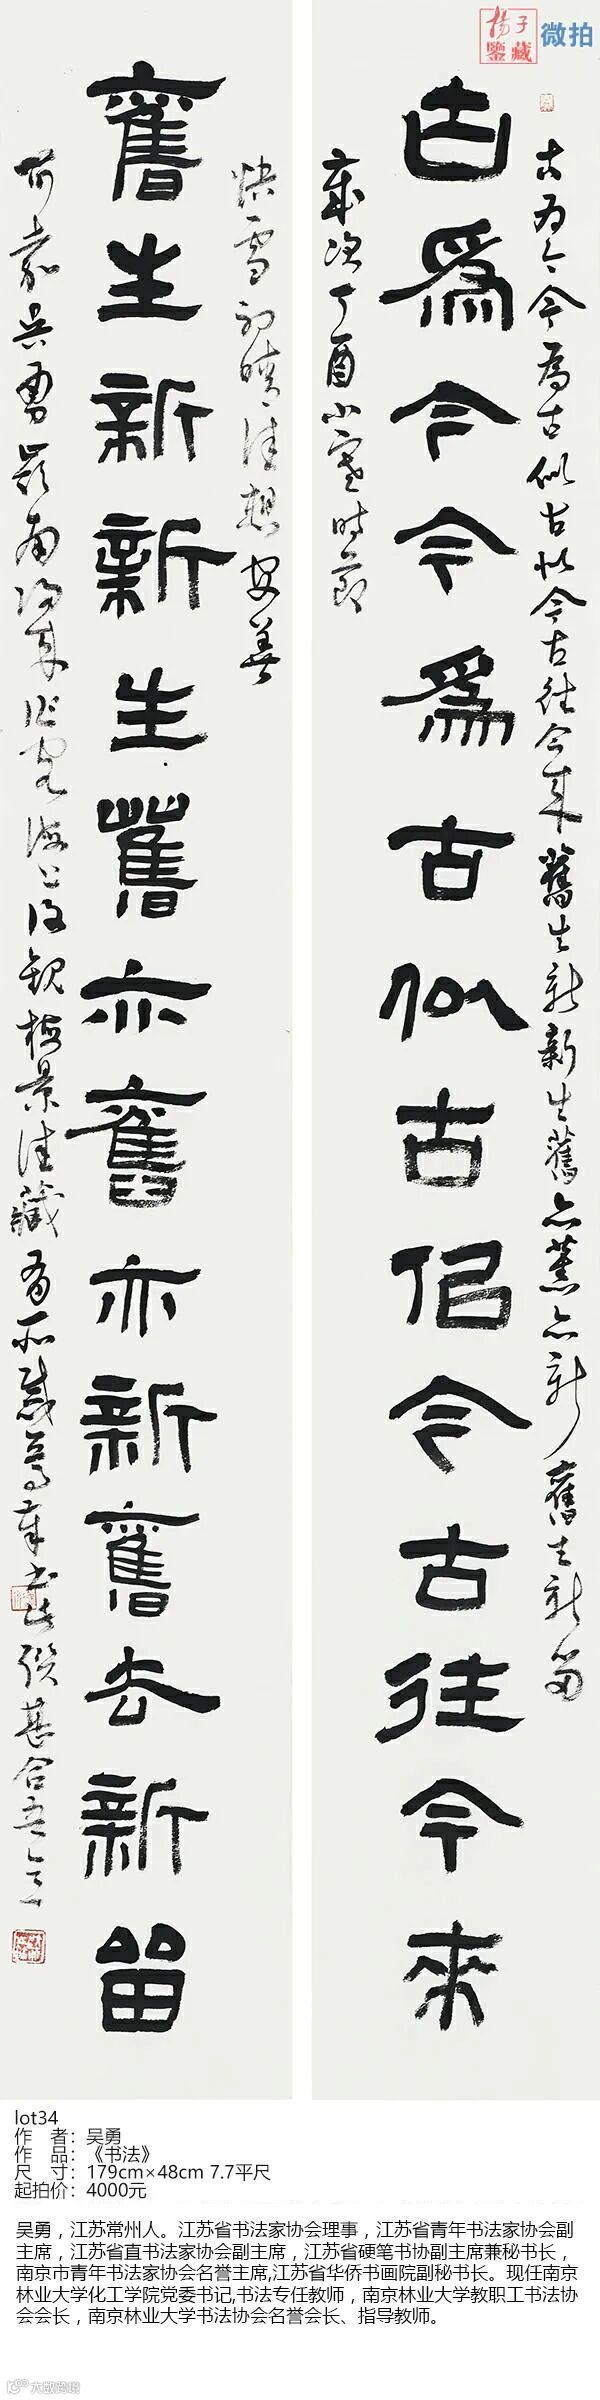 揚子
鑒藏
微拍
古為今今為古似古似今古往今來舊生新新生舊亦舊亦新舊去新留
古為今今為古似古佀今古往今來
歲次丁酉小寒時節
快雪初晴佳想安善
舊生新新生舊亦舊亦新舊去新留
吳勇
lot34
作 者：吴勇
作 品：《书法》
尺 寸：179cm×48cm 7.7平尺
起拍价：4000元
吴勇，江苏常州人。江苏省书法家协会理事，江苏省青年书法家协会副
主席，江苏省直书法家协会副主席，江苏省硬笔书协副主席兼秘书长，
南京市青年书法家协会名誉主席,江苏省华侨书画院副秘书长。现任南京
林业大学化工学院党委书记,书法专任教师，南京林业大学教职工书法协
会会长，南京林业大学书法协会名誉会长、指导教师。